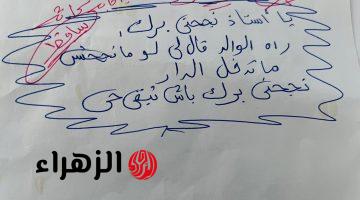 يا أستاذ نجحني برك
راه الوالد قال لي لو مانجحتش
ماتدخل الدار
نجحني برك باش تيقى خي
الزهراء